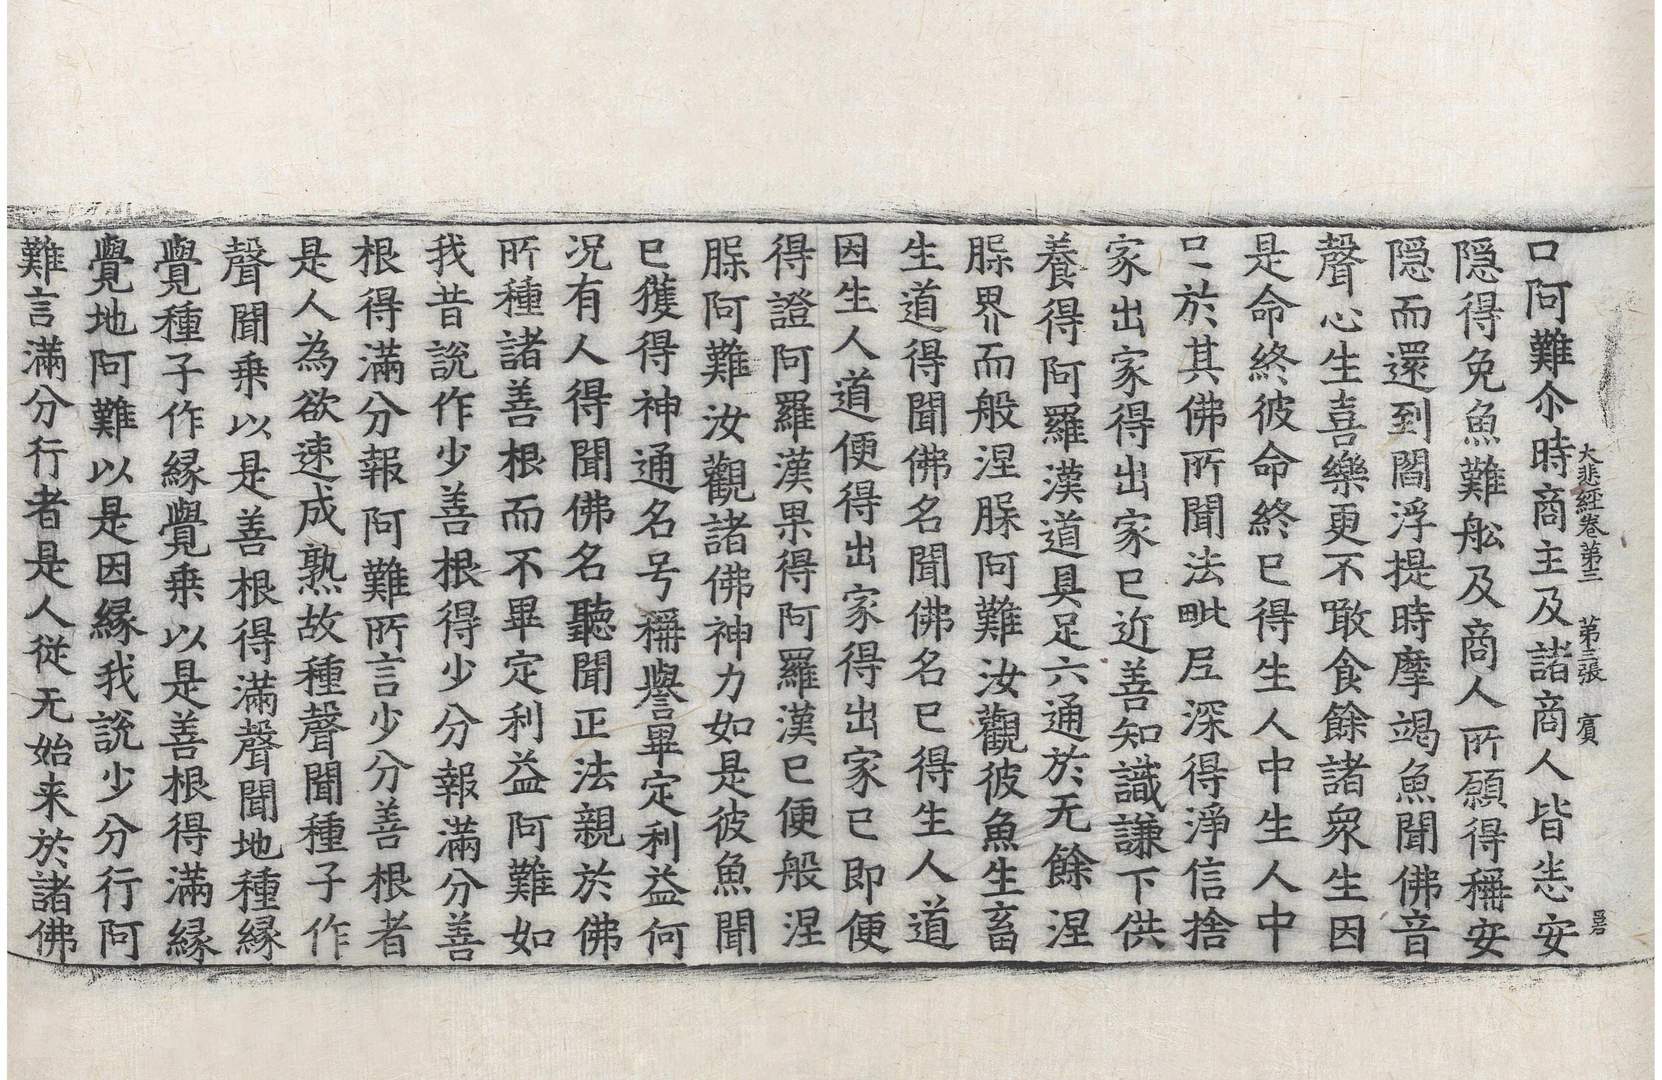 大悲經卷第三 第三張 賓
口阿難尒時商主及諸商人皆悉安
隱得免魚難舩及商人所願得稱安
隱而還到閻浮提時摩竭魚聞佛音
聲心生喜樂更不敢食餘諸衆生因
是命終彼命終已得生人中生人中
已於其佛所聞法毗尼深得淨信捨
家出家得出家已近善知識謙下供
養得阿羅漢道具足六通於无餘涅
腬界而般涅腬阿難汝觀彼魚生畜
生道得聞佛名聞佛名已得生人道
因生人道便得出家得出家已即便
得證阿羅漢果得阿羅漢已便般涅
腬阿難汝觀諸佛神力如是彼魚聞
已獲得神通名号稱譽畢定利益何
况有人得聞佛名聽聞正法親於佛
所種諸善根而不畢定利益阿難如
我昔說作少善根得少分報滿分善
根得滿分報阿難所言少分善根者
是人為欲速成熟故種聲聞種子作
聲聞乗以是善根得滿聲聞地種縁
覺種子作縁覺乗以是善根得滿縁
覺地阿難以是因縁我說少分行阿
難言滿分行者是人從无始来於諸佛